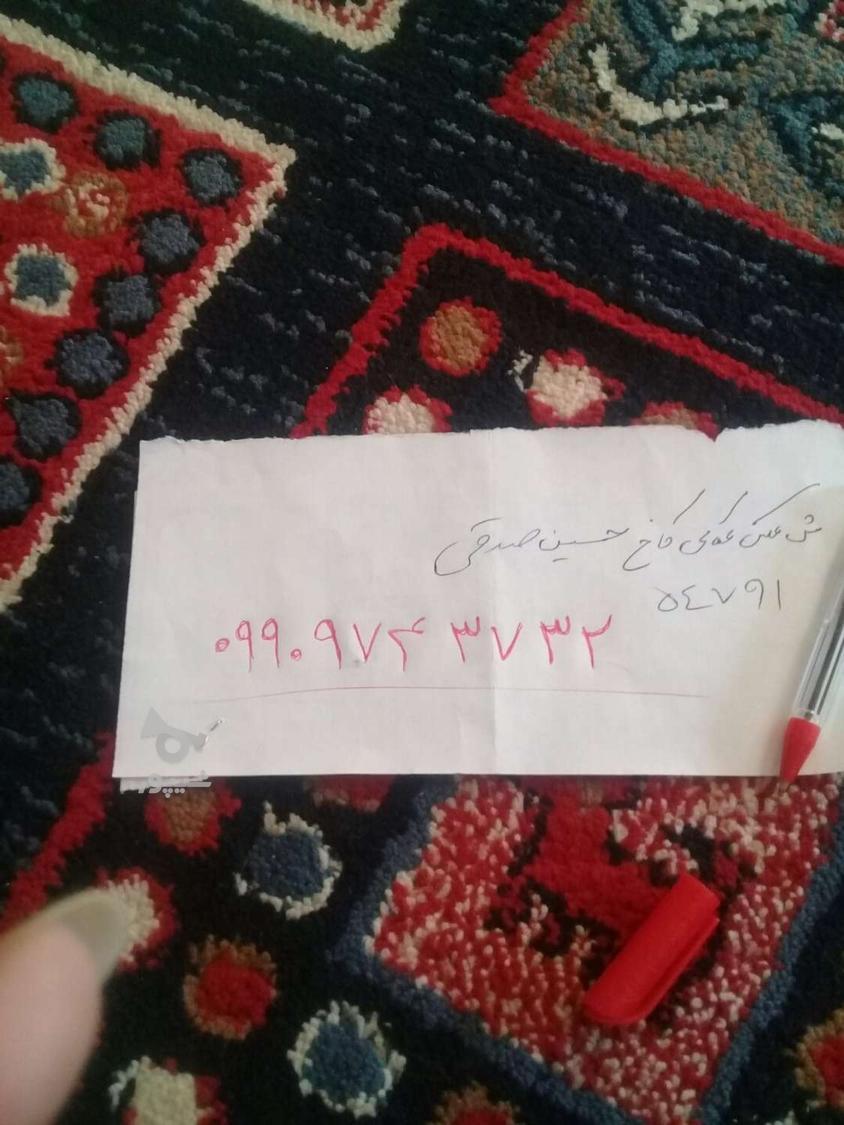 ش عکس عکاسی کاخ حسین صدقی
۵٤۷۹۱
۰۹۹۰۹۷۴۳۷۳۲
شیپور